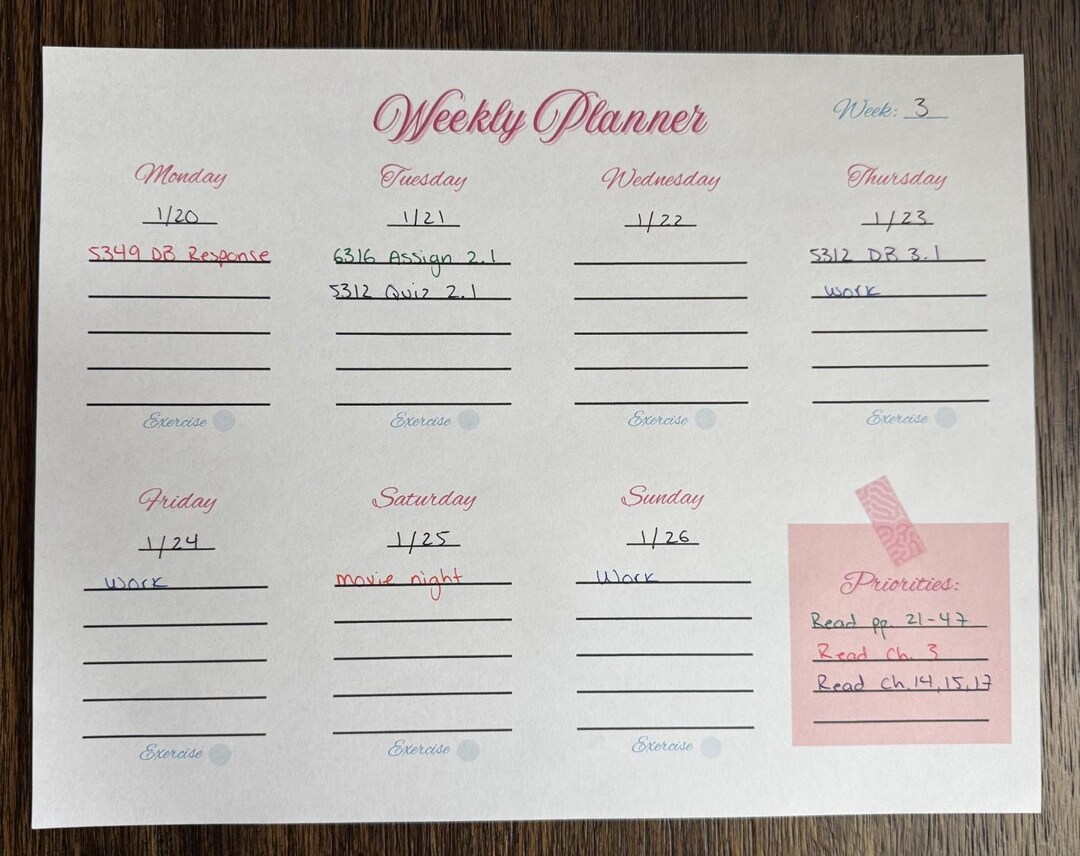 Weekly Planner
Week: 3
Monday
1/20
5349 DB Response
Exercise
Tuesday
1/21
6316 Assign 2.1
5312 Quiz 2.1
Exercise
Wednesday
1/22
Exercise
Thursday
1/23
5312 DB 3.1
Work
Exercise
Friday
1/24
Work
Exercise
Saturday
1/25
movie night
Exercise
Sunday
1/26
Work
Exercise
Priorities:
Read pp. 21-47
Read Ch. 3
Read Ch. 14, 15, 17